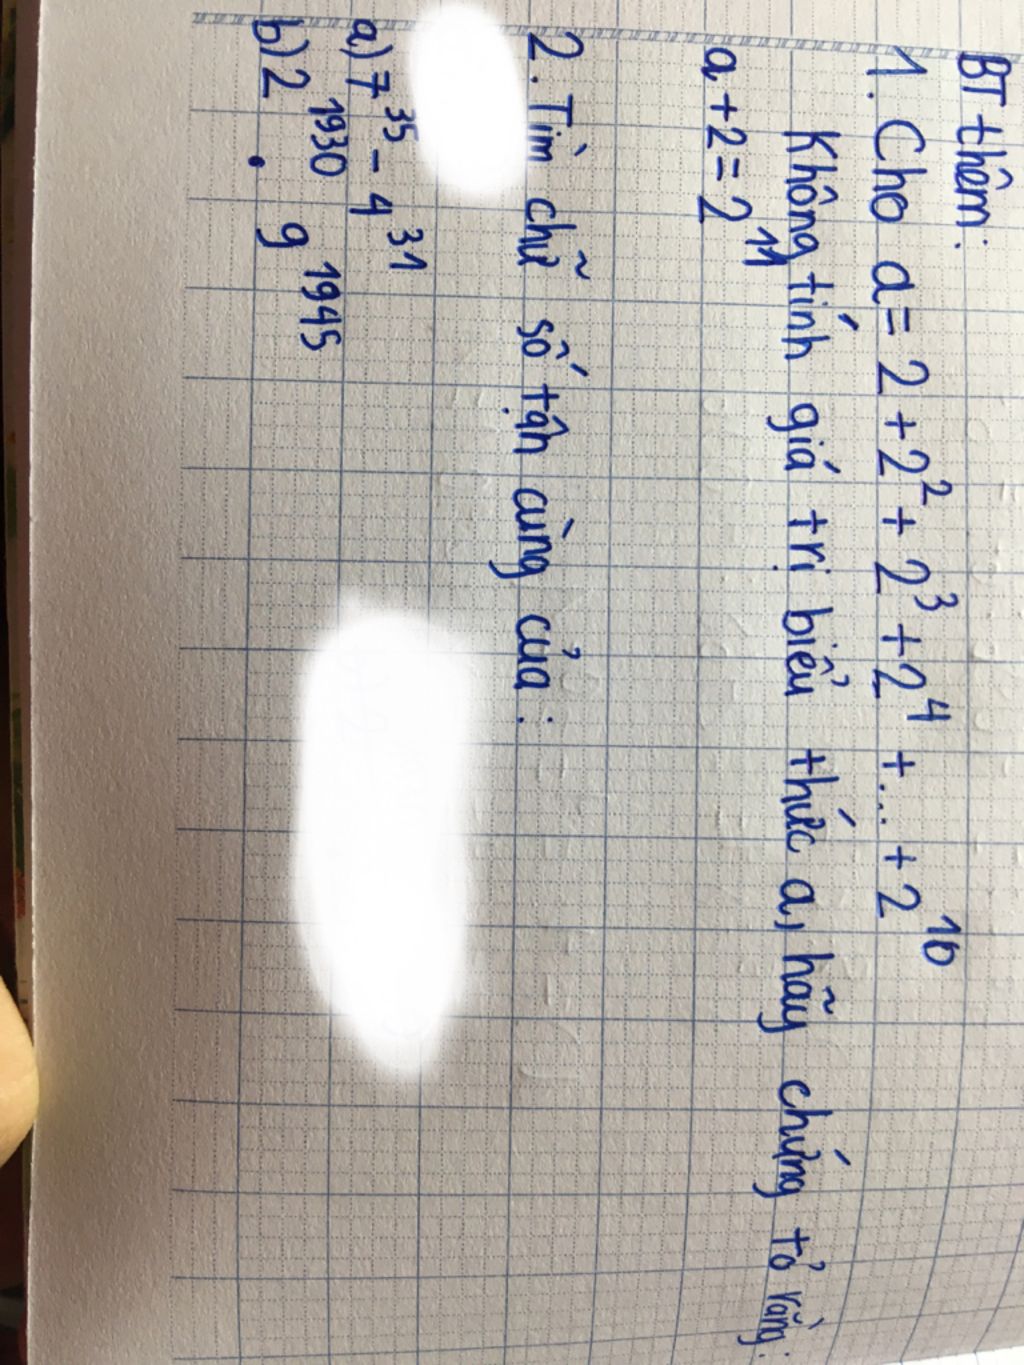 BT thêm:
1. Cho a = 2 + 2² + 2³ + 2⁴ + ... + 2¹⁰
Không tính giá trị biểu thức a, hãy chứng tỏ rằng:
a + 2 = 2¹¹
2. Tìm chữ số tận cùng của:
a) 7³⁵ - 4³¹
b) 2¹⁹³⁰ . 9¹⁹⁴⁵